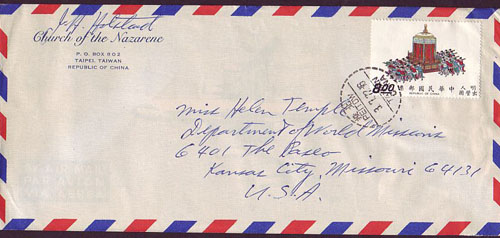 Church of the Nazarene
P. O. BOX 802
TAIPEI, TAIWAN
REPUBLIC OF CHINA
8.00
中華民國郵
REPUBLIC OF CHINA
Miss Helen Temple
Department of World Missions
6401 The Paseo
Kansas City, Missouri 64131
U.S.A.